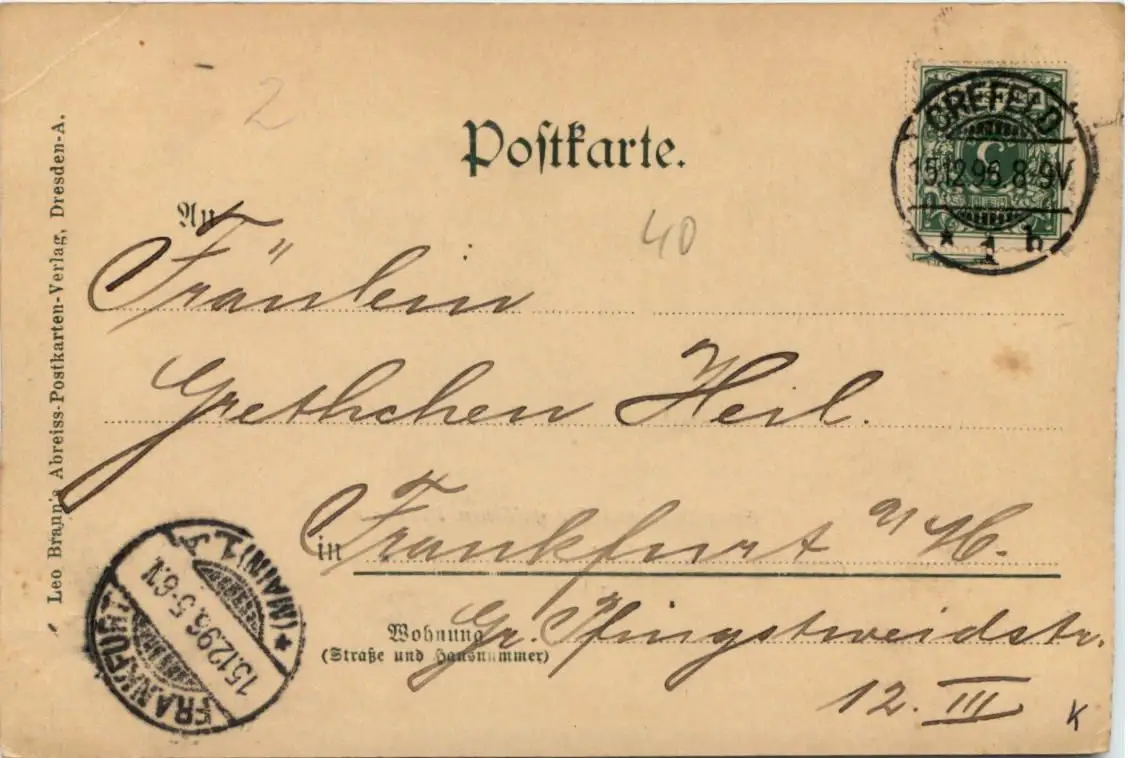 2
Postkarte.
CREFELD
15.12.96.8-9V
* 1 h
An
Fräulein
40
Grethchen Heil.
in Frankfurt a/M.
Wohnung
(Straße und Hausnummer)
Gr. Pfingstweidstr.
12. III
K
FRANKFURT (MAIN) 1. *
15.12.96.5-6.N.
Leo Braun's Abreiss-Postkarten-Verlag, Dresden-A.